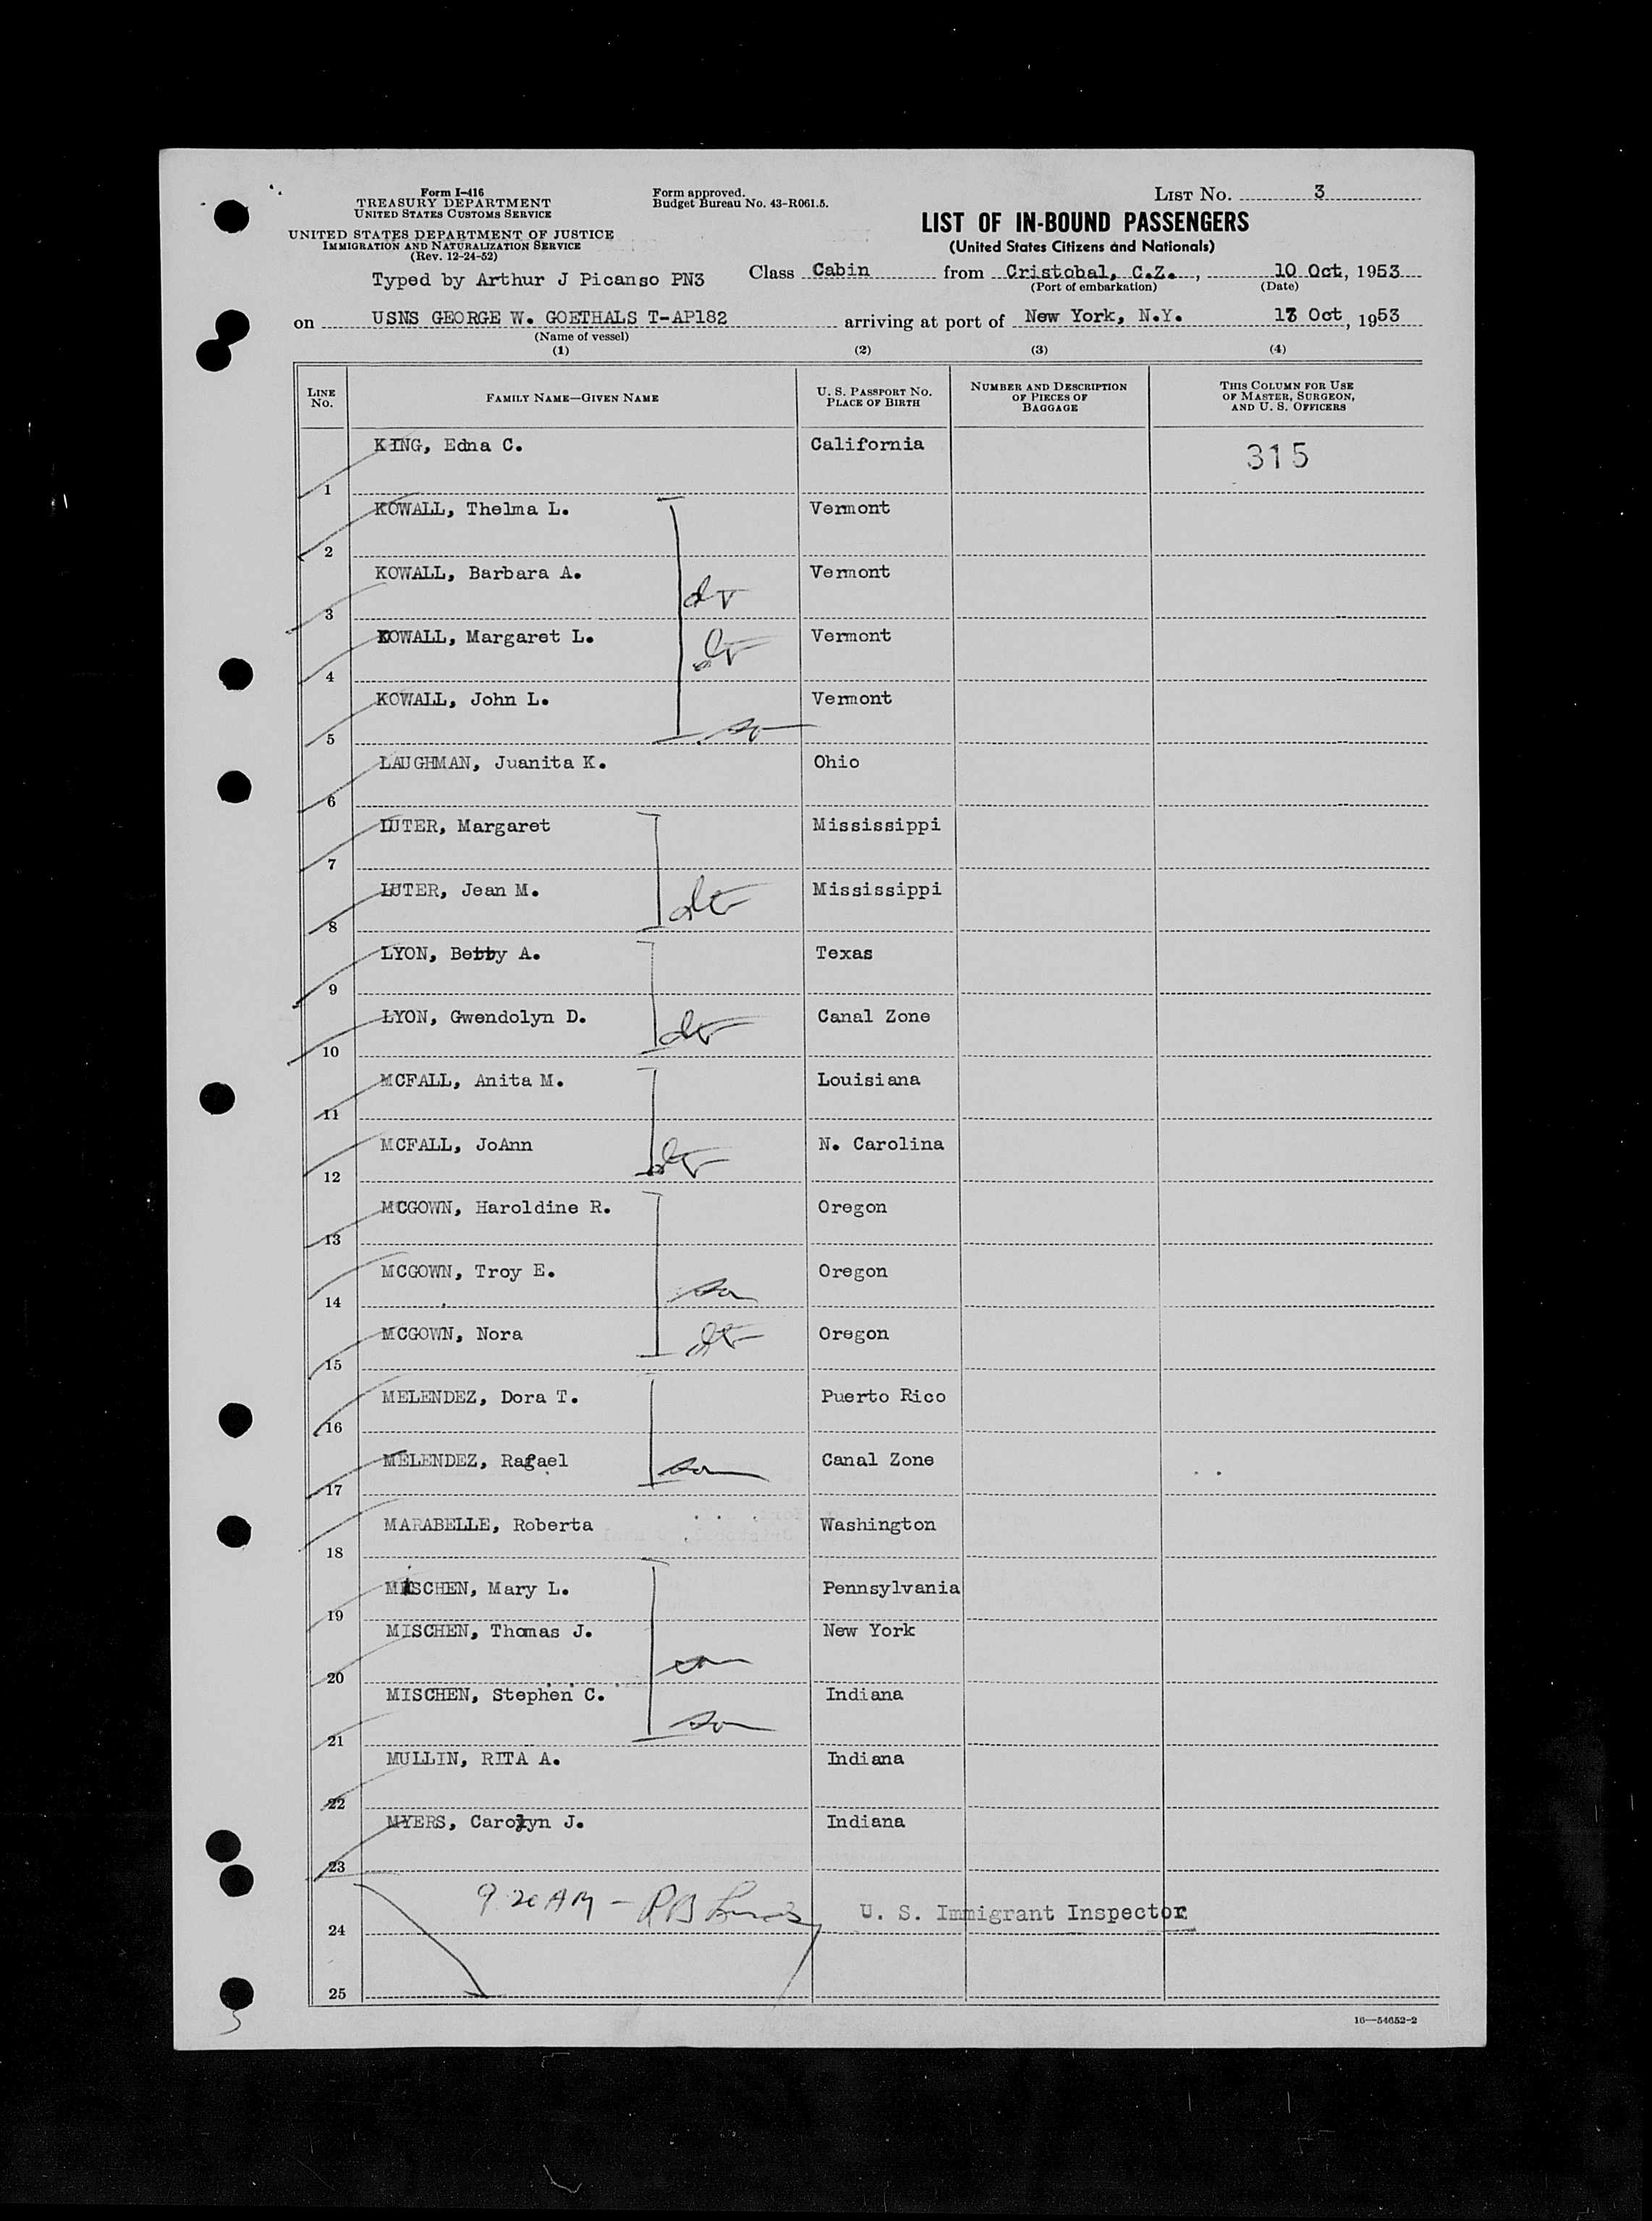 Form I-416
TREASURY DEPARTMENT
UNITED STATES CUSTOMS SERVICE
UNITED STATES DEPARTMENT OF JUSTICE
IMMIGRATION AND NATURALIZATION SERVICE
(Rev. 12-24-52)
Form approved.
Budget Bureau No. 43-R061.5.
LIST NO. 3
LIST OF IN-BOUND PASSENGERS
(United States Citizens and Nationals)
Typed by Arthur J Picanso PN3
Class Cabin from Cristobal, C.Z., 10 Oct, 1953
(Port of embarkation) (Date)
on USNS GEORGE W. GOETHALS T-AP182 arriving at port of New York, N.Y. 13 Oct, 1953
(Name of vessel)
(1) (2) (3) (4)
LINE NO. FAMILY NAME—GIVEN NAME U. S. PASSPORT NO. PLACE OF BIRTH NUMBER AND DESCRIPTION OF PIECES OF BAGGAGE THIS COLUMN FOR USE OF MASTER, SURGEON, AND U. S. OFFICERS
1 KING, Edna C. California 315
2 KOWALL, Thelma L. Vermont
3 KOWALL, Barbara A. Vermont
4 KOWALL, Margaret L. Vermont
5 KOWALL, John L. Vermont
6 LAUGHMAN, Juanita K. Ohio
7 LUTER, Margaret Mississippi
8 LUTER, Jean M. Mississippi
9 LYON, Betty A. Texas
10 LYON, Gwendolyn D. Canal Zone
11 MCFALL, Anita M. Louisiana
12 MCFALL, JoAnn N. Carolina
13 MCGOWN, Haroldine R. Oregon
14 MCGOWN, Troy E. Oregon
15 MCGOWN, Nora Oregon
16 MELENDEZ, Dora T. Puerto Rico
17 MELENDEZ, Rafael Canal Zone
18 MARABELLE, Roberta Washington
19 MISCHEN, Mary L. Pennsylvania
20 MISCHEN, Thomas J. New York
21 MISCHEN, Stephen C. Indiana
22 MULLIN, RITA A. Indiana
23 MYERS, Carolyn J. Indiana
24 9:20 AM - RB U. S. Immigrant Inspector
25
16—54652-2